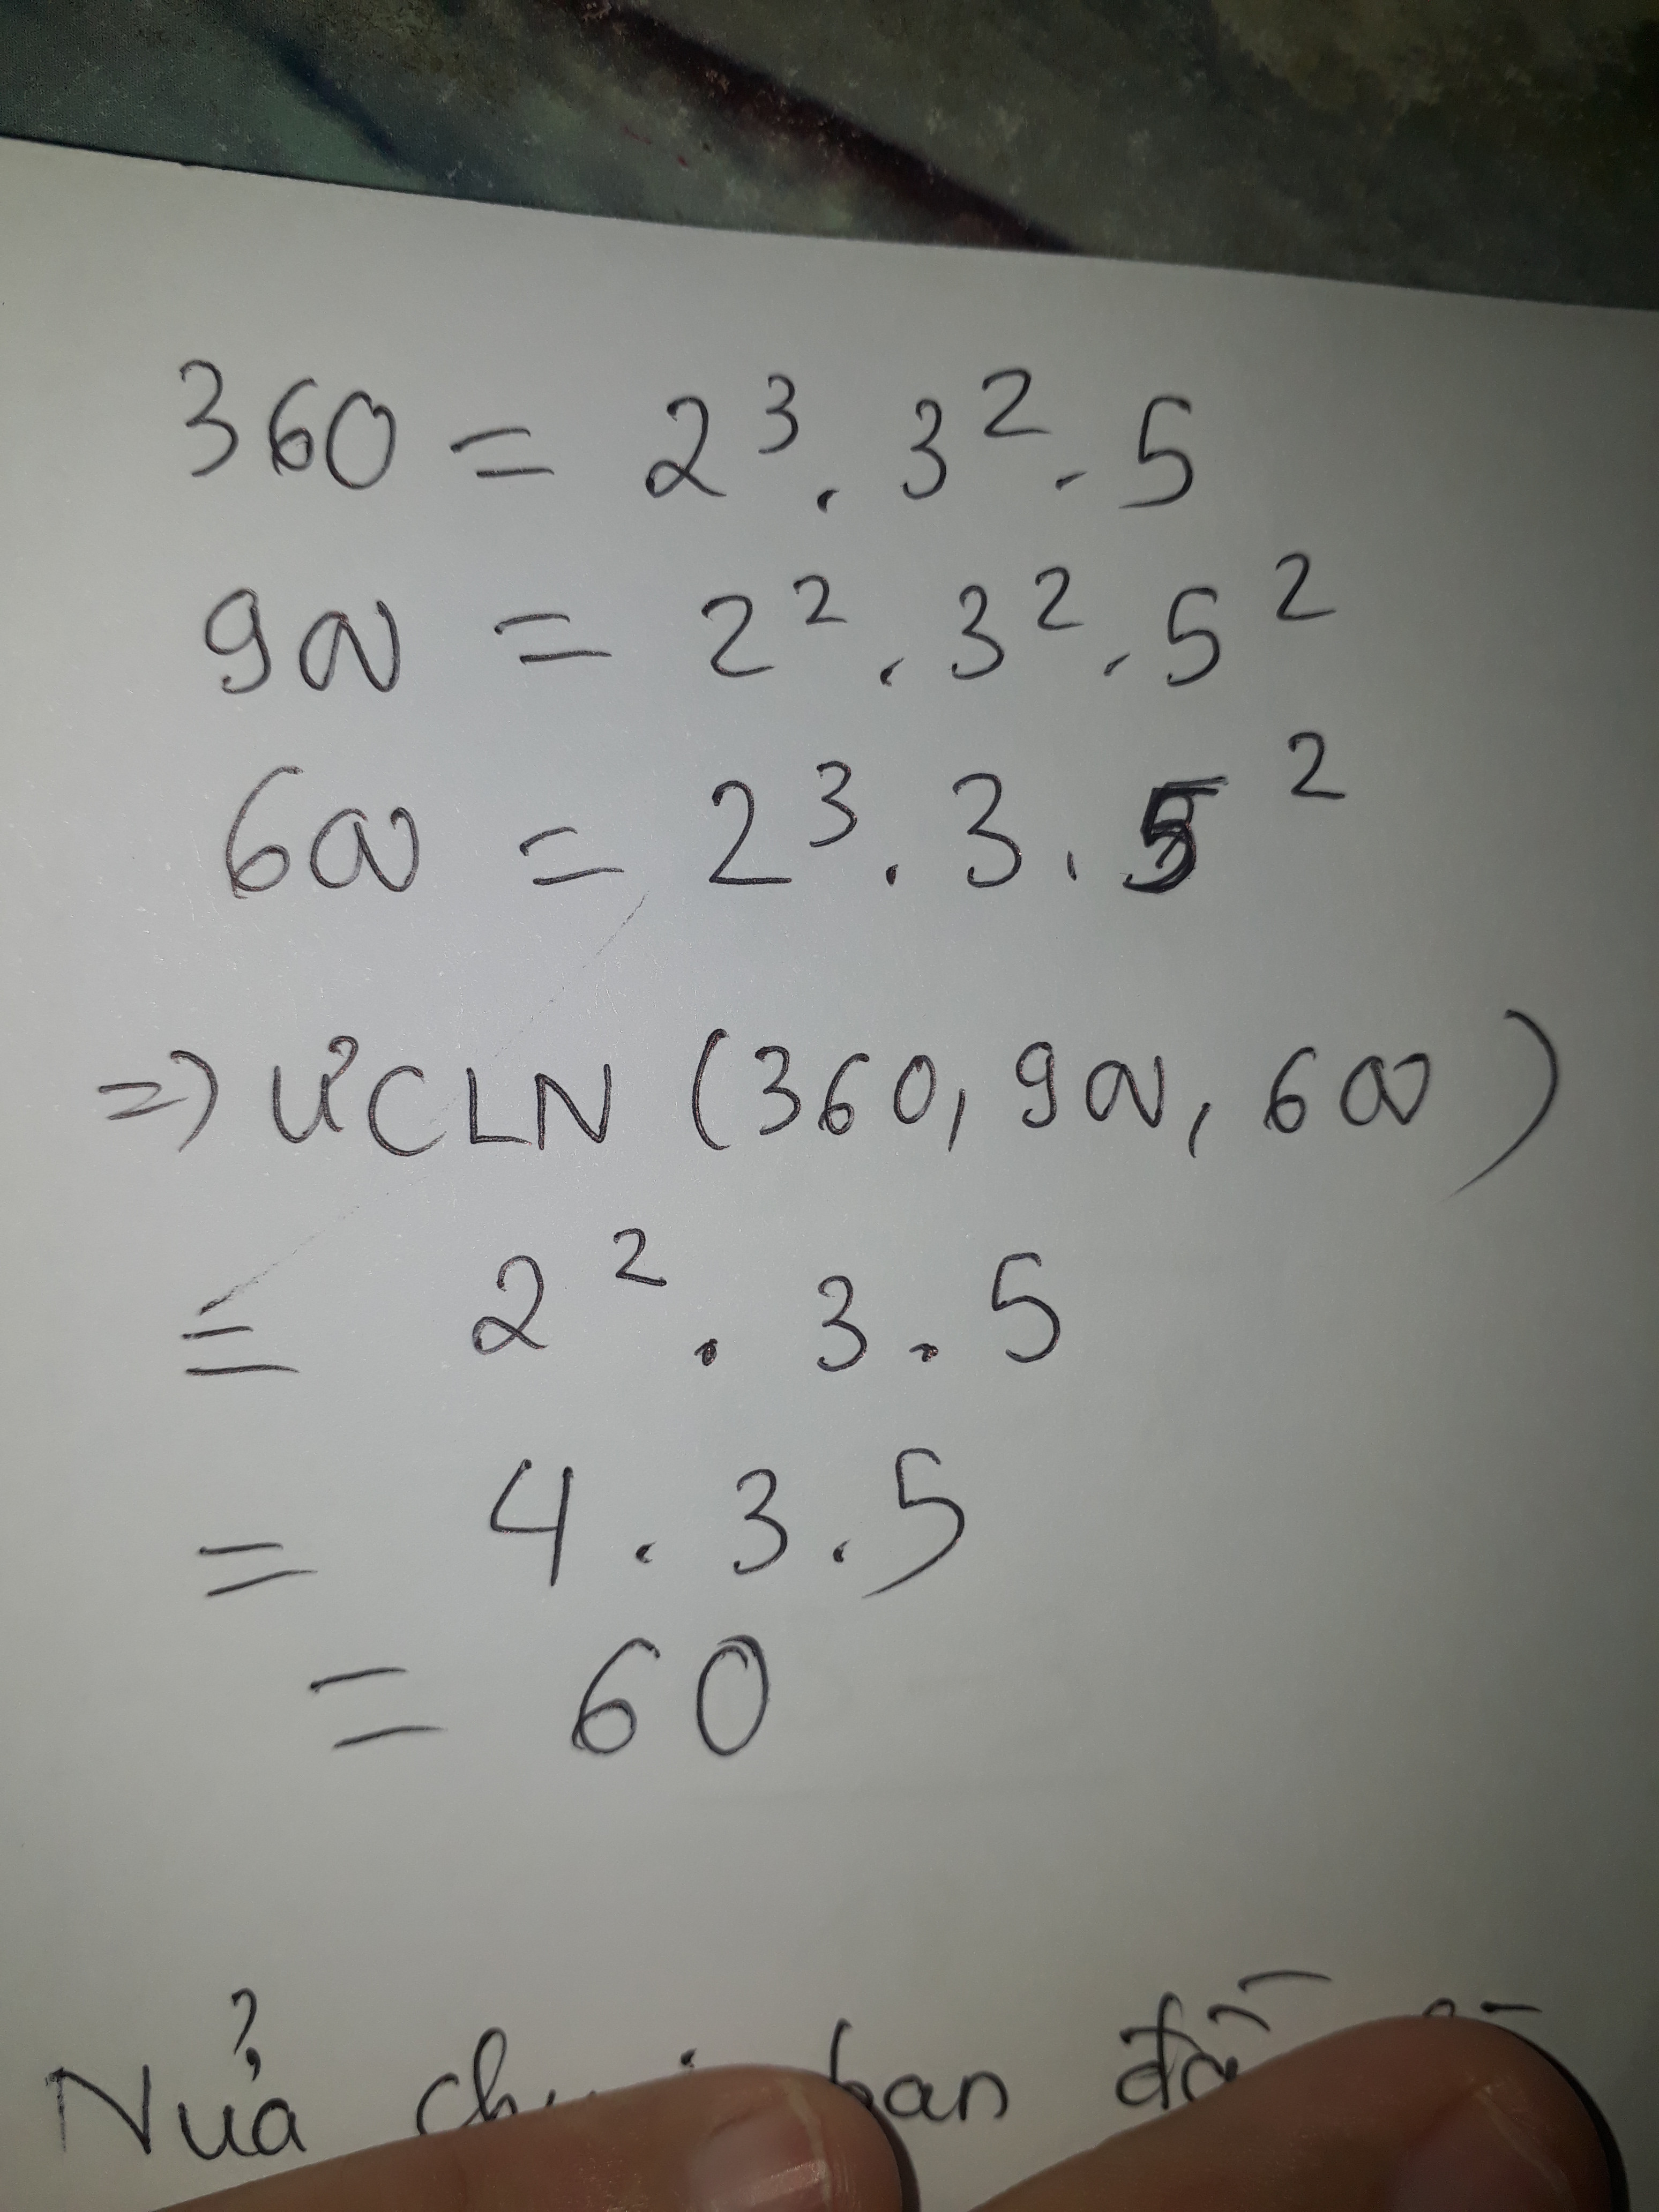 360 = 2³ . 3² . 5
900 = 2² . 3² . 5²
600 = 2³ . 3 . 5²
=> ƯCLN (360, 900, 600)
= 2² . 3 . 5
= 4 . 3 . 5
= 60
Nửa ban